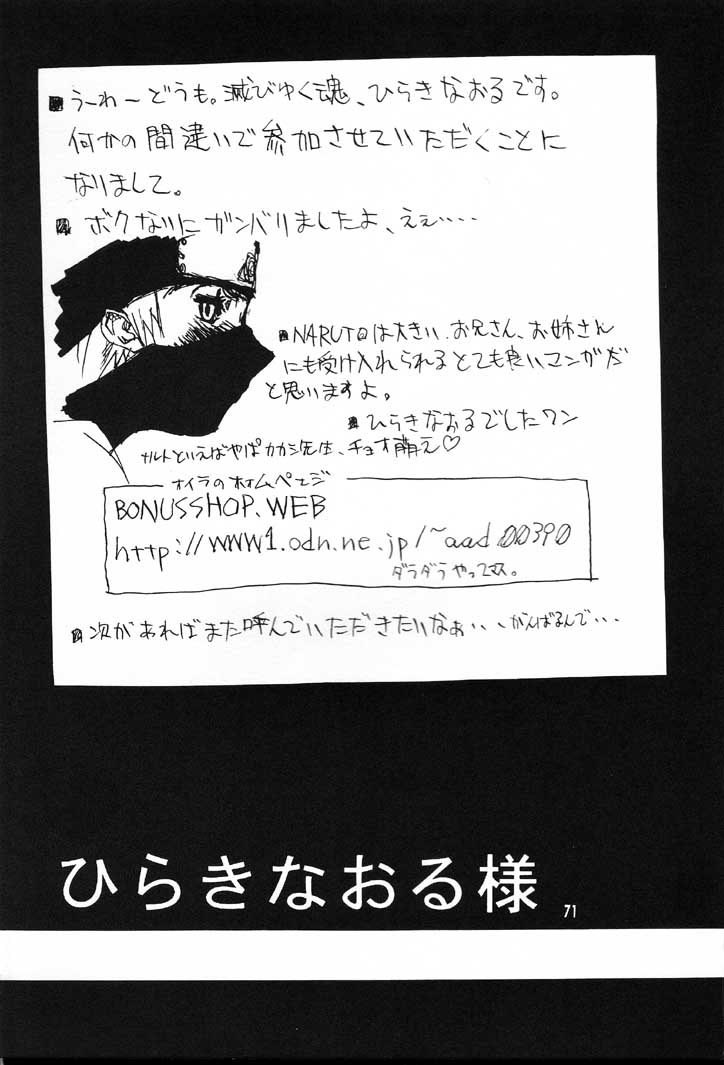 うーわーどうも。滅びゆく魂、ひらきなおるです。
何かの間違いで参加させていただくことに
なりまして。
ボクなりにガンバリましたよ、えぇ・・・・
NARUTOは大きい、お兄さん、お姉さん
にも受け入れられるとても良いマンガだ
と思いますよ。
ひらきなおるでしたワン
ナルトといえばやぱカカシ先生、チョオ萌え♡
オイラのホームページ
BONUSSHOP.WEB
http://www1.odn.ne.jp/~aad00390
ダラダラやってマス。
次があればまた呼んでいただきたいなぁ・・、がんばるんで・・・
ひらきなおる様
71